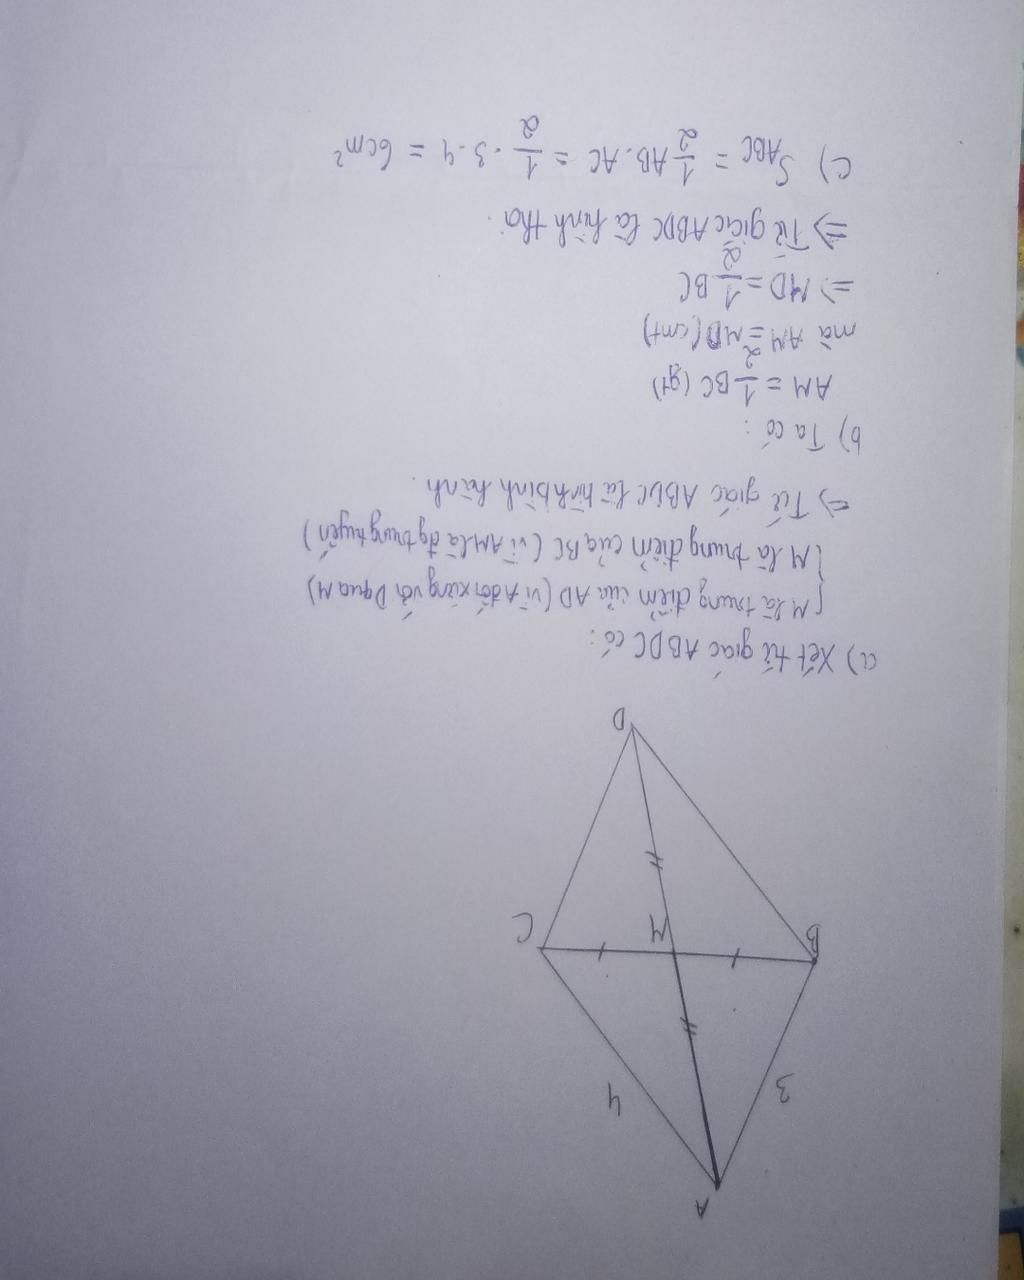 A
3
4
B
M
C
D
a) Xét tứ giác ABDC có:
{ M là trung điểm của AD (vì A đối xứng với D qua M)
{ M là trung điểm của BC (vì AM là đg trung tuyến)
=> Tứ giác ABDC là hình bình hành.
b) Ta có:
AM = 1/2 BC (gt)
mà AM = MD (cmt)
=> MD = 1/2 BC
=> Tứ giác ABDC là hình thoi.
c) S ABC = 1/2 AB . AC = 1/2 . 3 . 4 = 6cm²